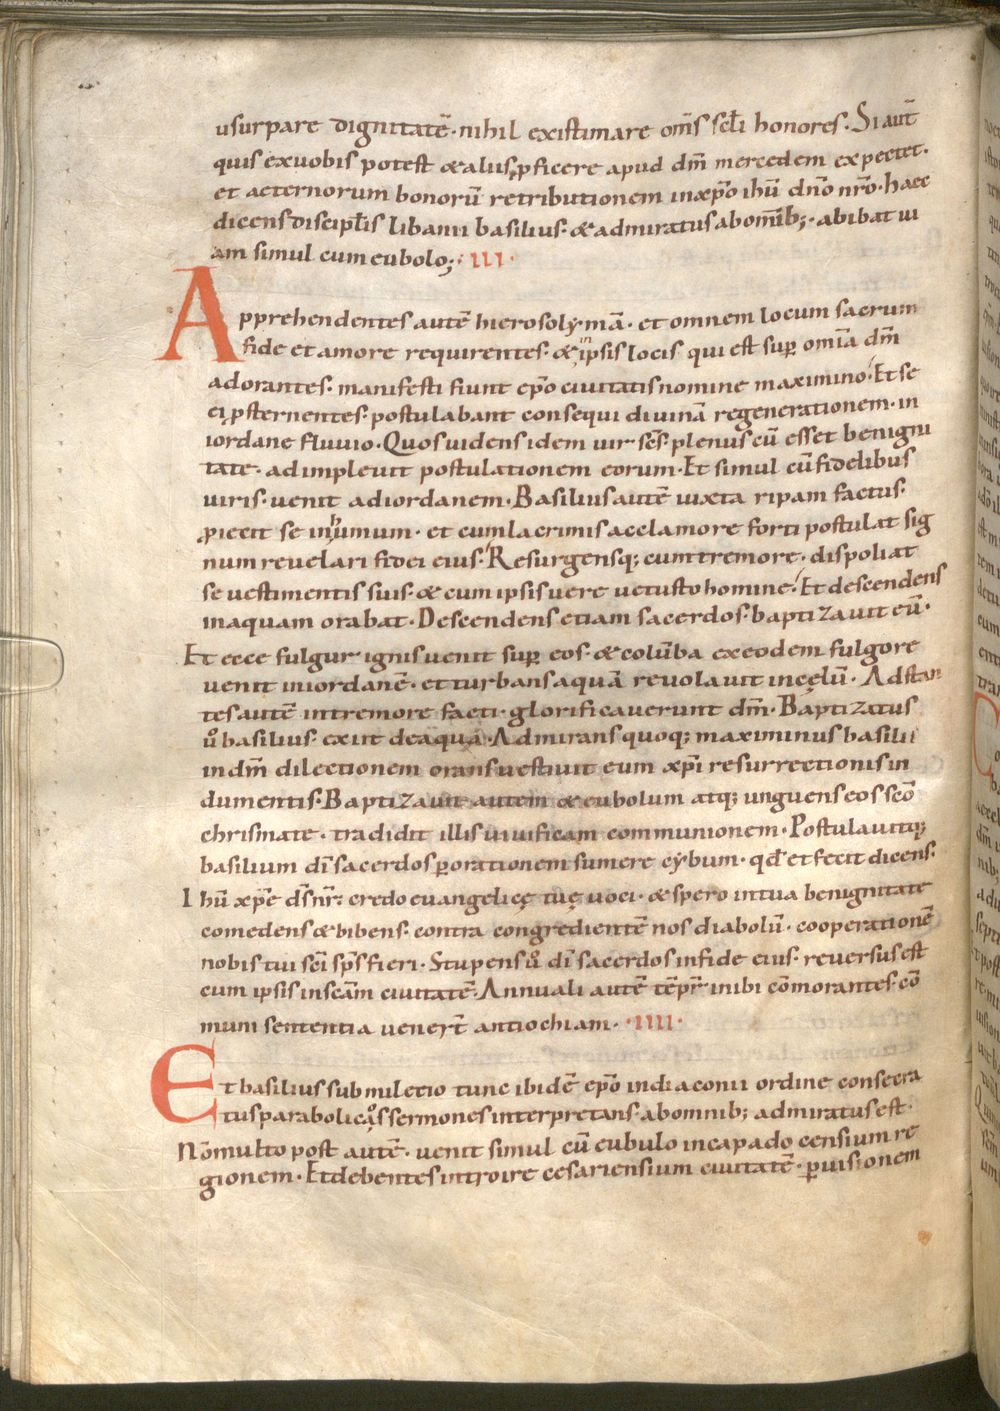 usurpare dignitatē· nihil existimare om̄s scl̄i honores· Si aut̄
quis ex uobis potest & aliis ꝓficere apud dn̄m mercedem expectet·
et aeternorum bonorū retributionem in xp̄o ihū dn̄o nr̄o· haec
dicens discipl̄is libanii basilius· & admiratus ab om̄ib; · abibat ui
am simul cum eubolo; · III ·
Apprehendentes autē hierosolymā· et omnem locum sacrum
fide et amore requirentes· & in ipsis locis qui est suꝑ omīa dm̄
adorantes· manifesti fiunt ep̄o ciuitatis nomine maximino· Et se
ei ꝓsternentes· postulabant consequi diuinā regenerationem· in
iordane fluuio· Quos uidens idem uir sc̄s· plenus cū esset benigni
tate· adimpleuit postulationem eorum· Et simul cū fidelibus
uiris· uenit ad iordanem· Basilius autē iuxta ripam factus·
ꝓiecit se in humum· et cum lacrimis ac clamore forti postulat sig
num reuelari fidei eius· Resurgensq; cum tremore· dispoliat
se uestimentis suis· & cum ipsis uere uetusto homine· Et descendens
in aquam orabat· Descendens etiam sacerdos· baptizauit eū·
Et ecce fulgur ignis uenit suꝑ eos· & colūba ex eodem fulgore
uenit in iordanē· et turbans aquā reuolauit in cęlū· Adstan
tes autē in tremore facti· glorificauerunt dm̄· Baptizatus
ů basilius· exiit de aqua· Admirans quoq; maximinus basilii
in dm̄ dilectionem orans uestiuit eum xp̄i resurrectionis in
dumentis· Baptizauit autem & eubolum atq; unguens eos sc̄o
chrismate· tradidit illis uiuificam communionem· Postulauitq;
basilium dī sacerdos ꝑ orationem sumere cybum· qd̄ et fecit dicens·
Ihū xp̄e ds̄ nr̄ credo euangelicę tuę uoci· & spero in tua benignitate
comedens & bibens· contra congredientē nos diabolū· cooperationē
nobis tui sc̄i sp̄s fieri· Stupens ů dī sacerdos in fide eius· reuersus est
cum ipsis in sc̄am ciuitatē· Annuali autē tēpr̄ inibi cōmorantes· cō
muni sententia uener̄t antiochiam· · IIII ·
Et basilius sub miletio tunc ibidē ep̄o in diaconii ordine consecra
tus parabolicos̊ sermones interpretans· ab omnib; admiratus est·
Nō multo post autē· uenit simul cū eubulo in capadocensium re
gionem· Et debentes introire cesariensium ciuitatē· ꝑ uisionem